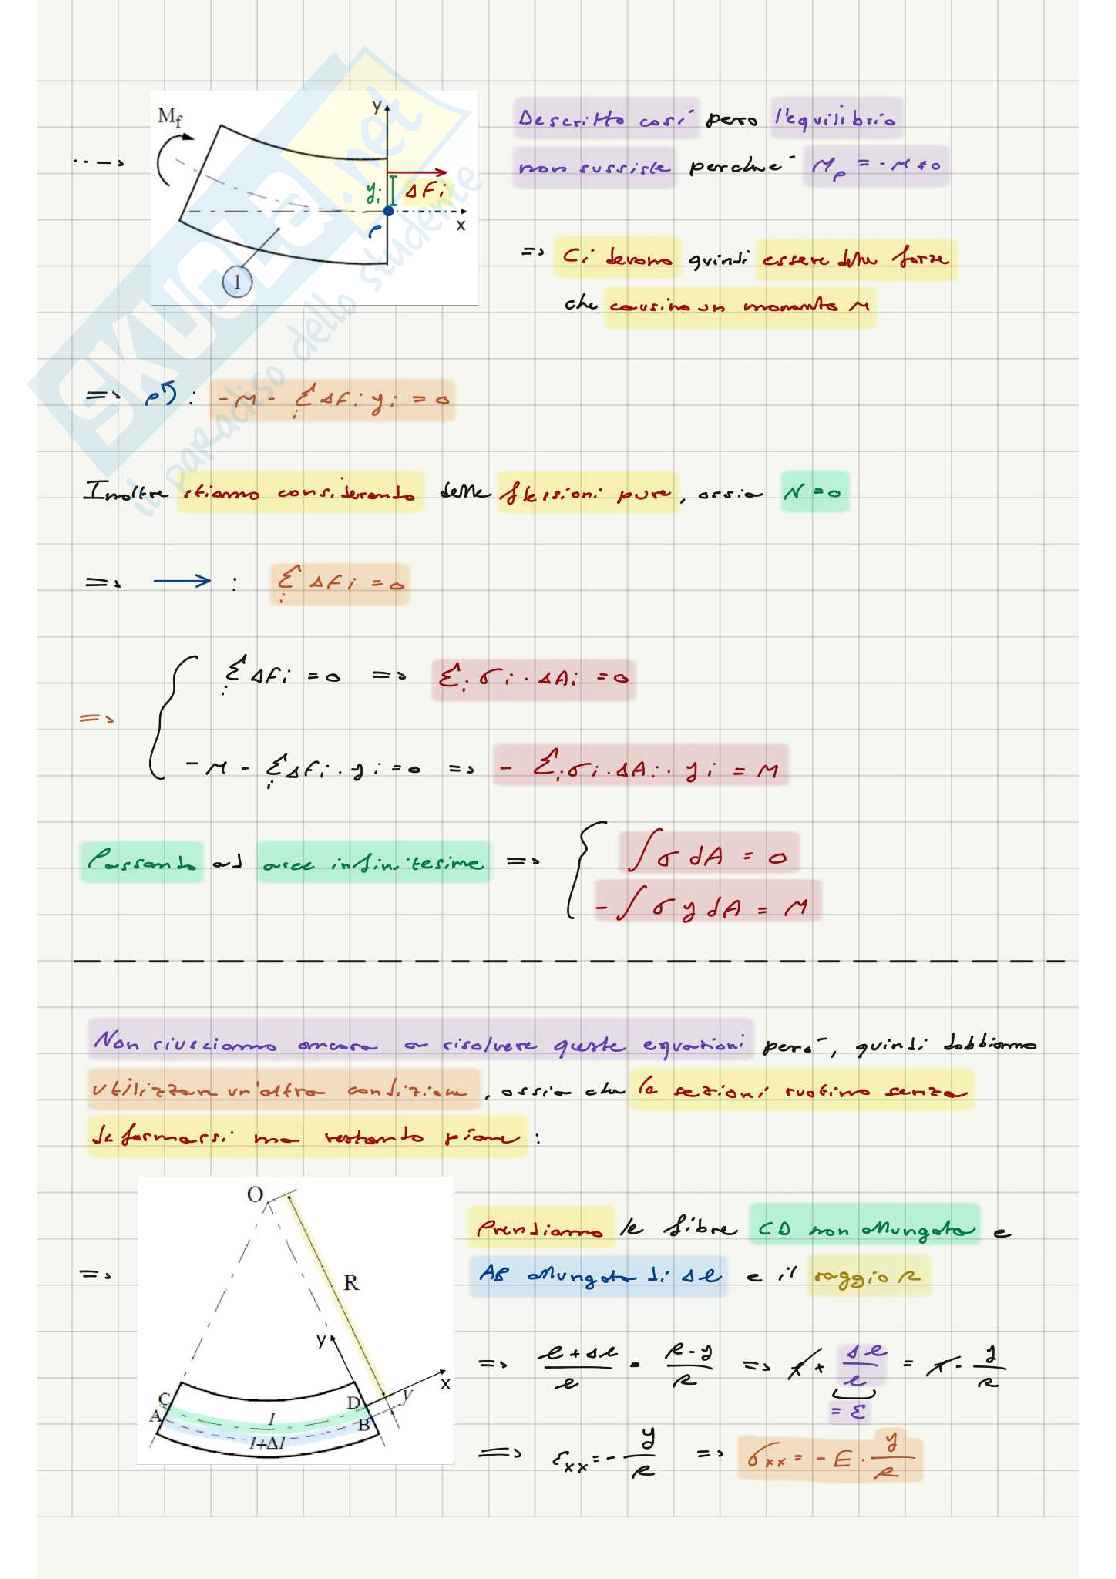 Descritto così però l'equilibrio
non sussiste perché M_P = -M ≠ 0
M_f y y_i ΔF_i x P 1
=> Ci devono quindi essere delle forze
che causino un momento M
=> P↺ : -M - Σ_i ΔF_i y_i = 0
Inoltre stiamo considerando delle flessioni pure, ossia N = 0
=> → : Σ_i ΔF_i = 0
Σ_i ΔF_i = 0 => Σ_i σ_i · ΔA_i = 0
=>
-M - Σ_i ΔF_i · y_i = 0 => - Σ_i σ_i · ΔA_i · y_i = M
Passando ad aree infinitesime => ∫ σ dA = 0
-∫ σ y dA = M
Non riusciamo ancora a risolvere queste equazioni però, quindi dobbiamo
utilizzare un'altra condizione, ossia che le sezioni ruotino senza
deformarsi ma restando piane :
O R y x C D A B y l l+Δl
Prendiamo le fibre CD non allungata e
=> AB allungata di Δl e il raggio R
=> (l + Δl)/l = (R - y)/R => 1 + Δl/l = 1 - y/R
= ε
=> ε_xx = - y/R => σ_xx = - E · y/R
SKUOLA.net
il paradiso dello studente